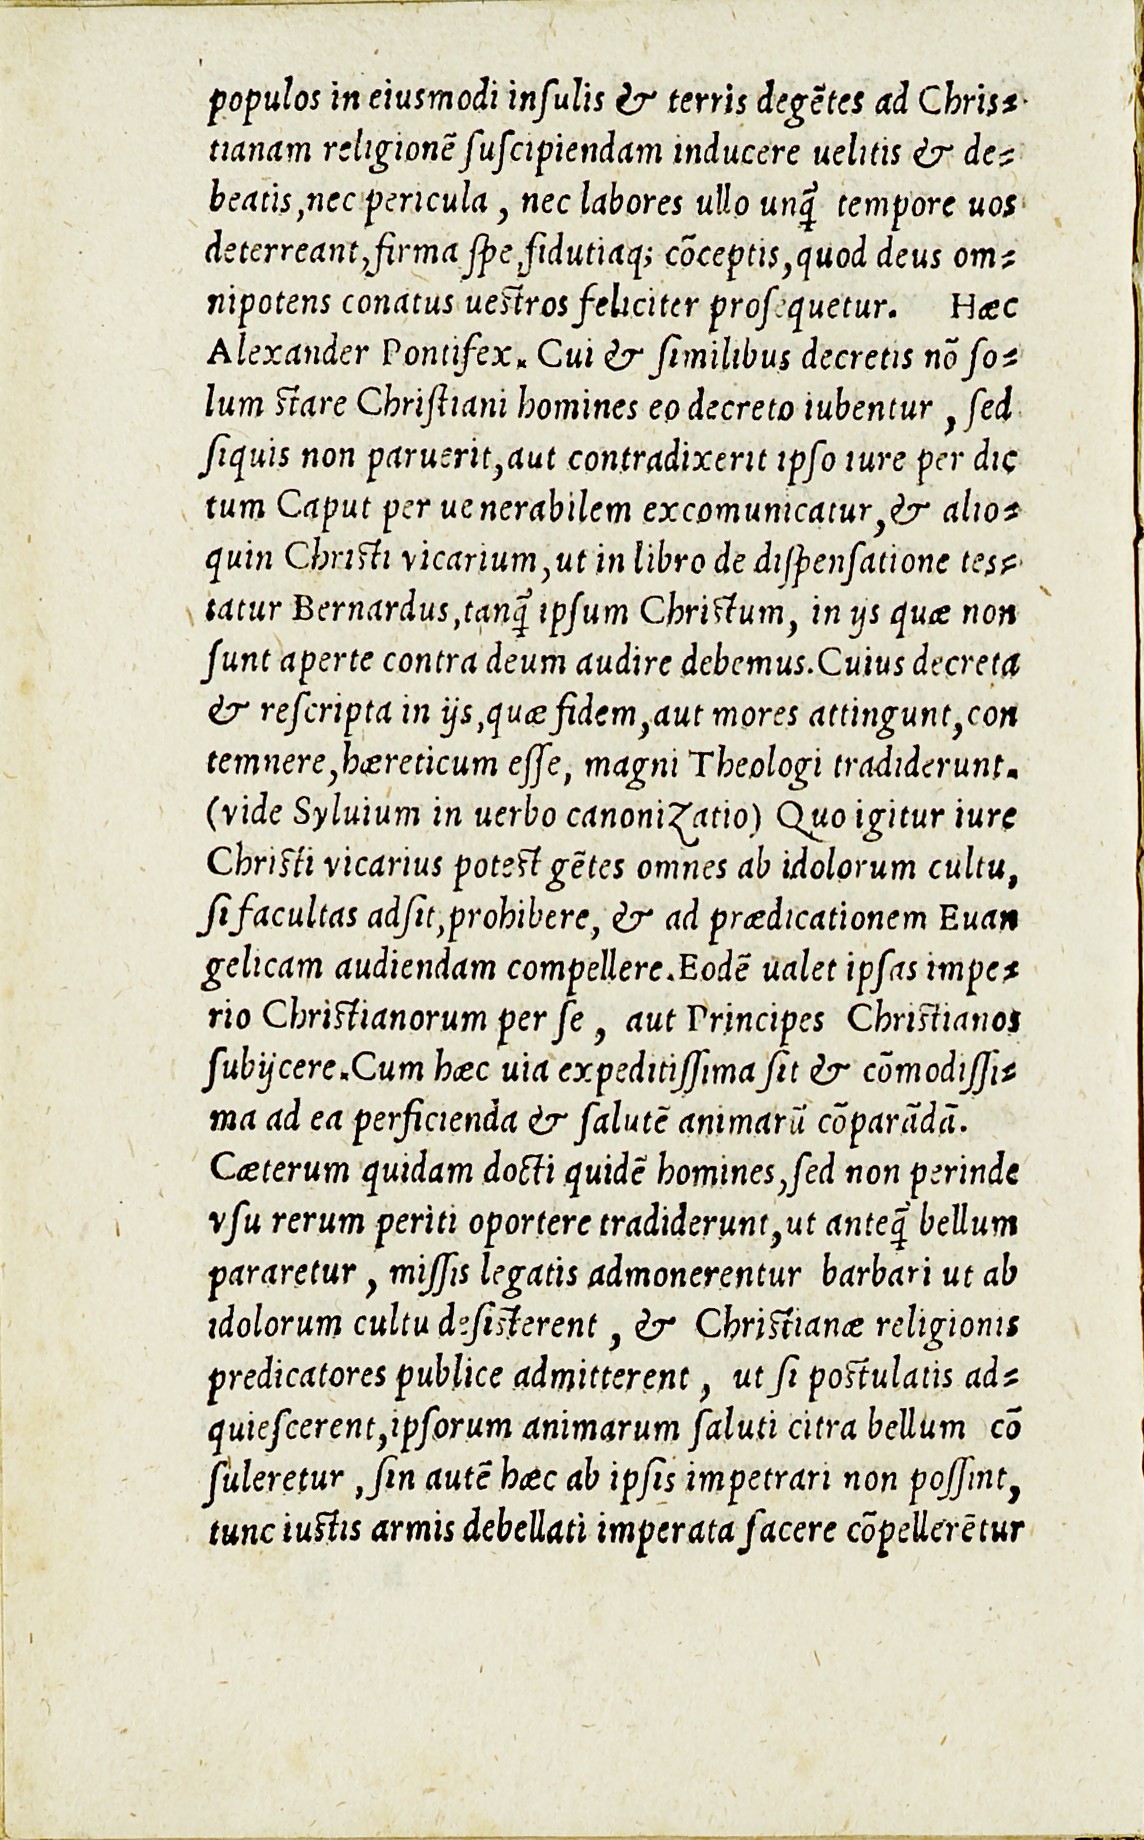 populos in eiusmodi inſulis & terris degẽtes ad Chris⸗
tianam religionẽ ſuſcipiendam inducere uelitis & de⸗
beatis, nec pericula, nec labores ullo unq̃ tempore uos
deterreant, firma ſpe, fidutiaq; cõceptis, quod deus om⸗
nipotens conatus ueſtros feliciter proſequetur. Hæc
Alexander Pontifex. Cui & ſimilibus decretis nõ ſo⸗
lum ſtare Chriſtiani homines eo decreto iubentur, ſed
ſiquis non paruerit, aut contradixerit ipſo iure per dic
tum Caput per uenerabilem excomunicatur, & alio⸗
quin Chriſti vicarium, ut in libro de diſpenſatione tes⸗
tatur Bernardus, tanq̃ ipſum Chriſtum, in ijs quæ non
ſunt aperte contra deum audire debemus. Cuius decreta
& reſcripta in ijs, quæ fidem, aut mores attingunt, con
temnere, hæreticum eſſe, magni Theologi tradiderunt.
(vide Syluium in uerbo canonizatio) Quo igitur iure
Chriſti vicarius poteſt gẽtes omnes ab idolorum cultu,
ſi facultas adſit, prohibere, & ad prædicationem Euan
gelicam audiendam compellere. Eodẽ ualet ipſas impe⸗
rio Chriſtianorum per ſe, aut Principes Chriſtianos
ſubijcere. Cum hæc uia expeditiſſima ſit & cõmodiſſi⸗
ma ad ea perficienda & ſalutẽ animarũ cõparãdã.
Cæterum quidam docti quidẽ homines, ſed non perinde
vſu rerum periti oportere tradiderunt, ut anteq̃ bellum
pararetur, miſſis legatis admonerentur barbari ut ab
idolorum cultu deſiſterent, & Chriſtianæ religionis
predicatores publice admitterent, ut ſi poſtulatis ad⸗
quieſcerent, ipſorum animarum ſaluti citra bellum cõ
ſuleretur, ſin autẽ hæc ab ipſis impetrari non poſſint,
tunc iuſtis armis debellati imperata facere cõpellerẽtur